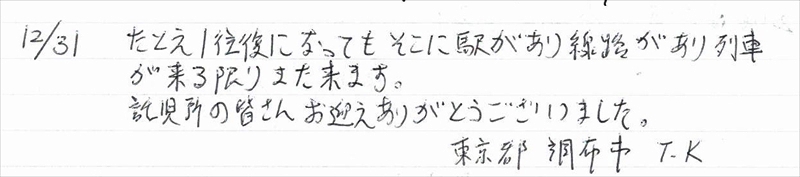 12/31 たとえ1往復になってもそこに駅があり線路があり列車
が来る限りまた来ます。
託児所の皆さんお迎えありがとうございました。
東京都 調布市 T.K